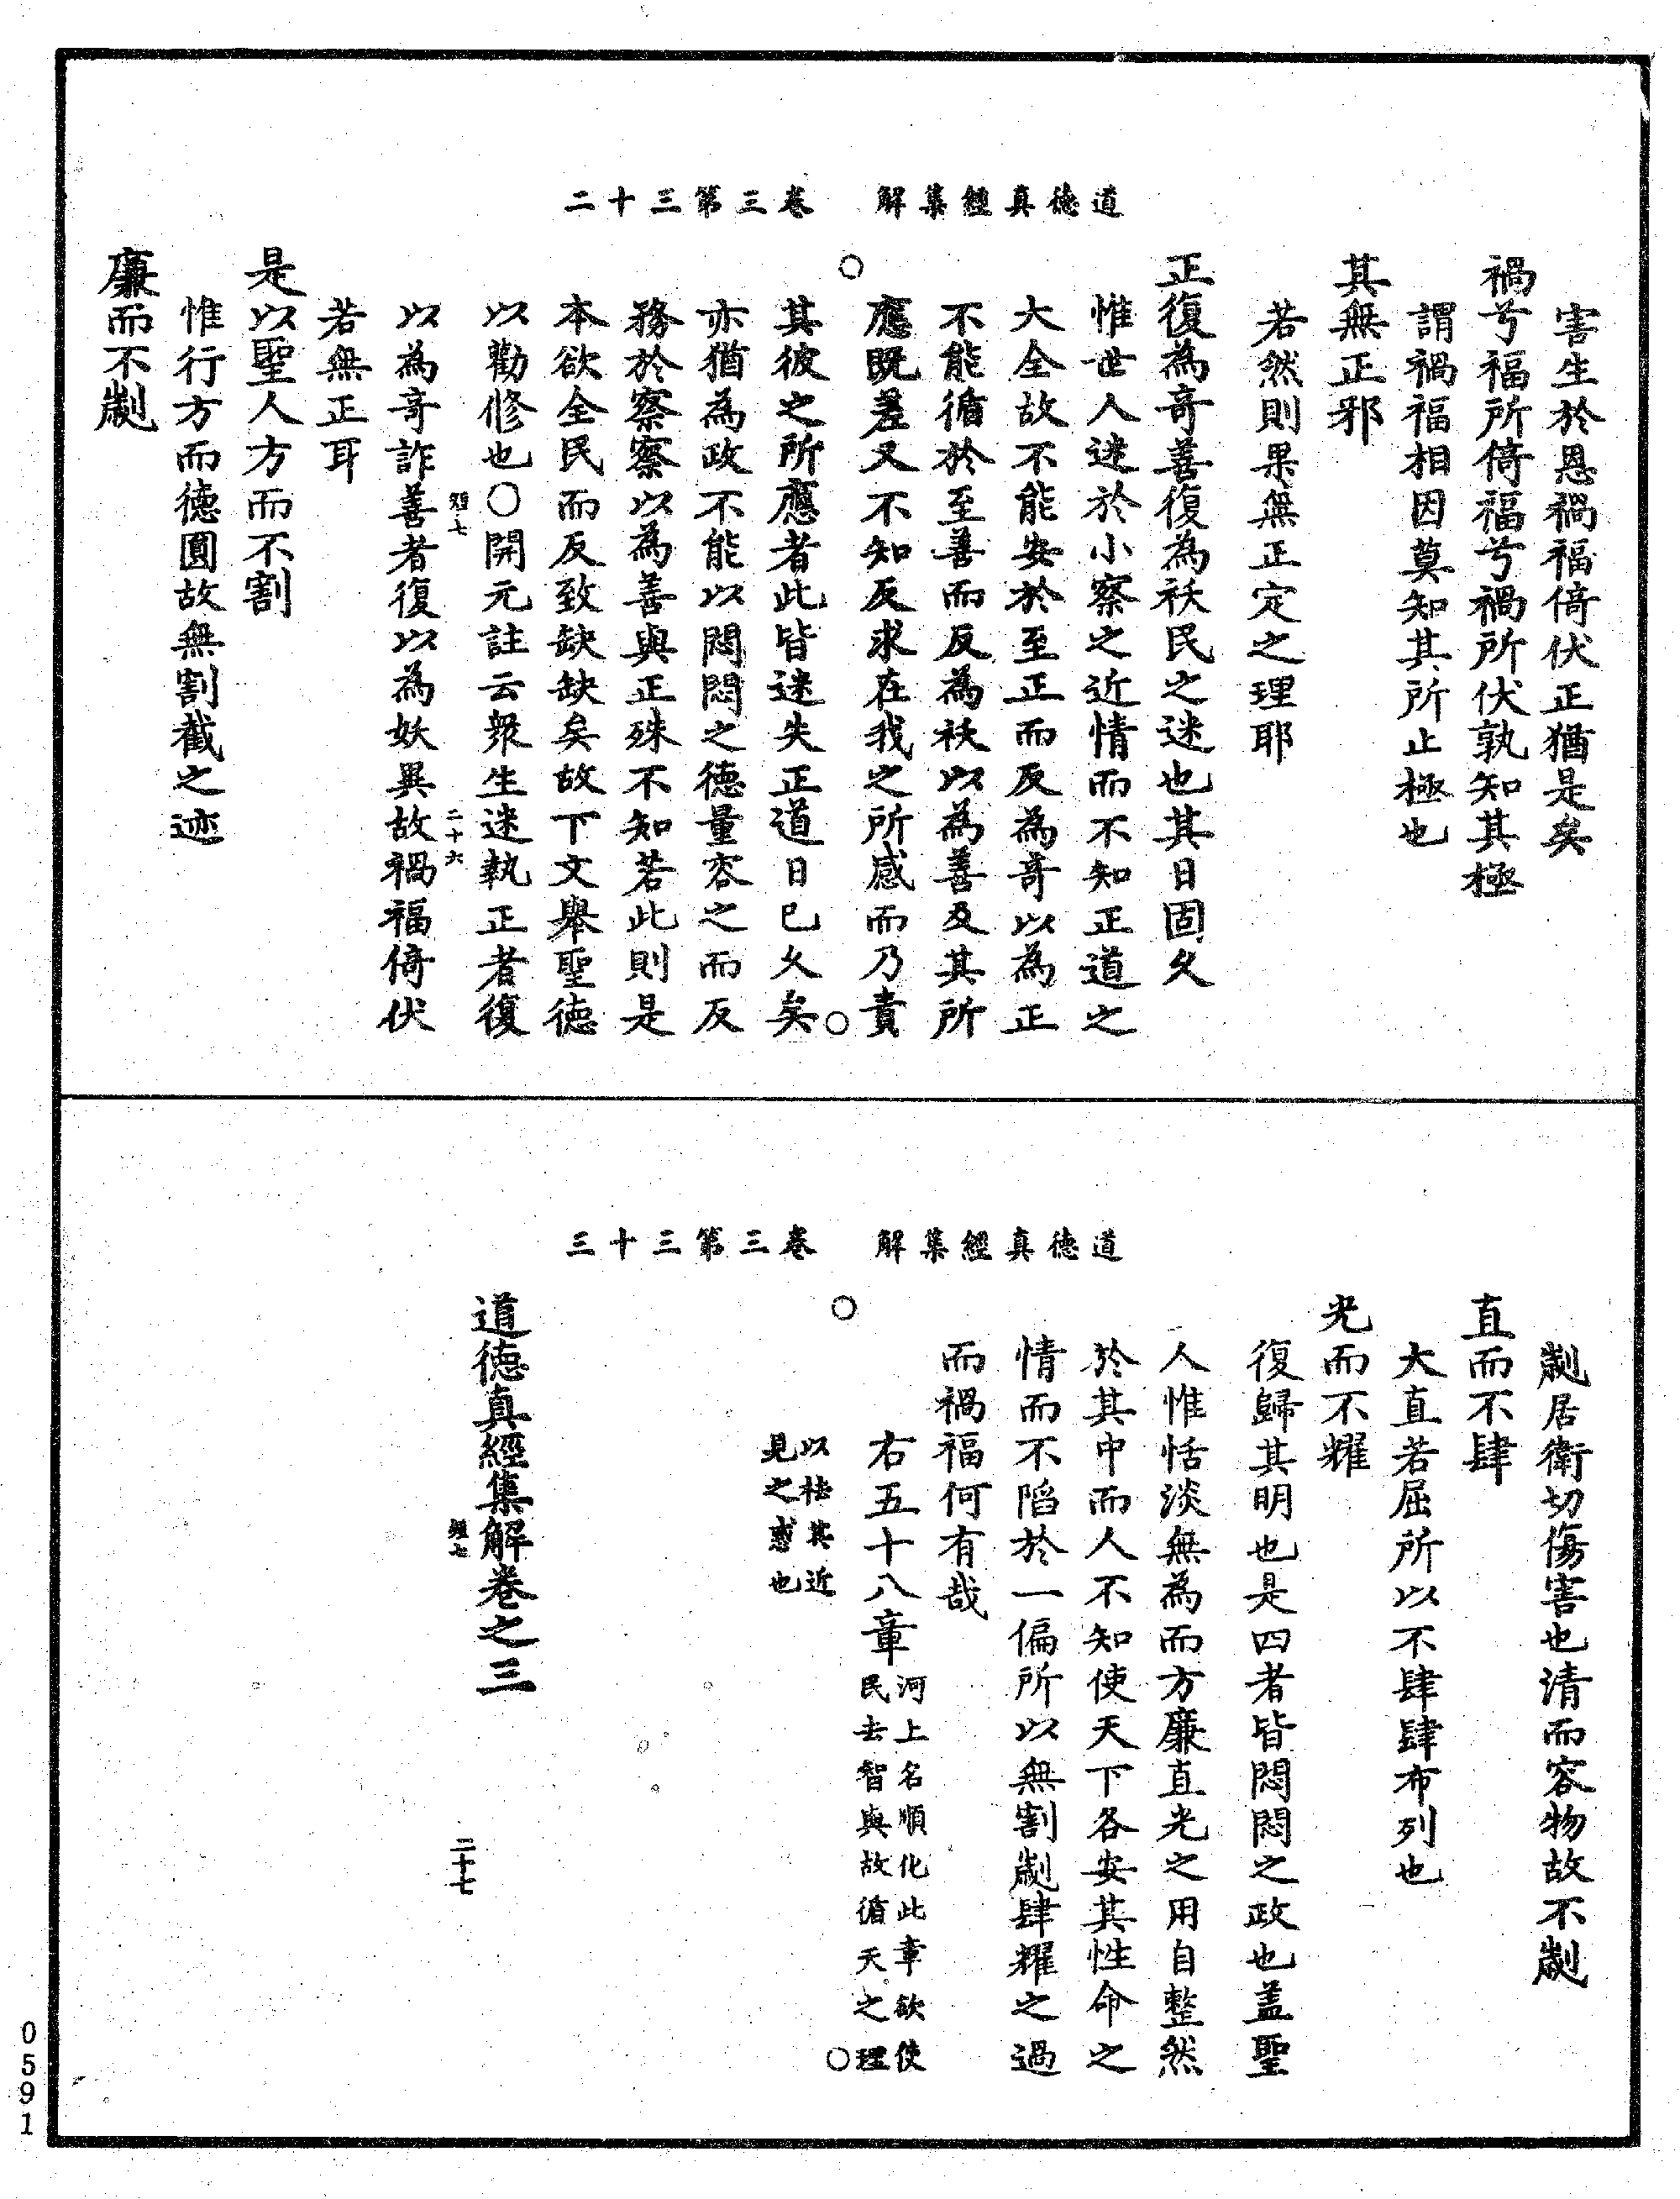 道德真經集解　卷三第三十二
害生於恩禍福倚伏正猶是矣
禍兮福所倚福兮禍所伏孰知其極
謂禍福相因莫知其所止極也
其無正邪
若然則果無正定之理耶
正復為奇善復為祅民之迷也其日固久
惟世人迷於小察之近情而不知正道之
大全故不能安於至正而反為奇以為正
不能循於至善而反為祅以為善及其所
應既差又不知反求在我之所感而乃責
其彼之所應者此皆迷失正道日已久矣
亦猶為政不能以悶悶之德量容之而反
務於察察以為善與正殊不知若此則是
本欲全民而反致缺缺矣故下文舉聖德
以勸修也〇開元註云衆生迷執正者復
短七　二十六
以為奇詐善者復以為妖異故禍福倚伏
若無正耳
是以聖人方而不割
惟行方而德圓故無割截之迹
廉而不劌
道德真經集解　卷三第三十三
劌居衛切傷害也清而容物故不劌
直而不肆
大直若屈所以不肆肆布列也
光而不耀
復歸其明也是四者皆悶悶之政也盖聖
人惟恬淡無為而方廉直光之用自整然
於其中而人不知使天下各安其性命之
情而不陷於一偏所以無割劌肆耀之過
而禍福何有哉
右五十八章河上名順化此章欲使
民去智與故循天之理
以袪其近
見之惑也
道德真經集解卷之三
短七　二十七
0591